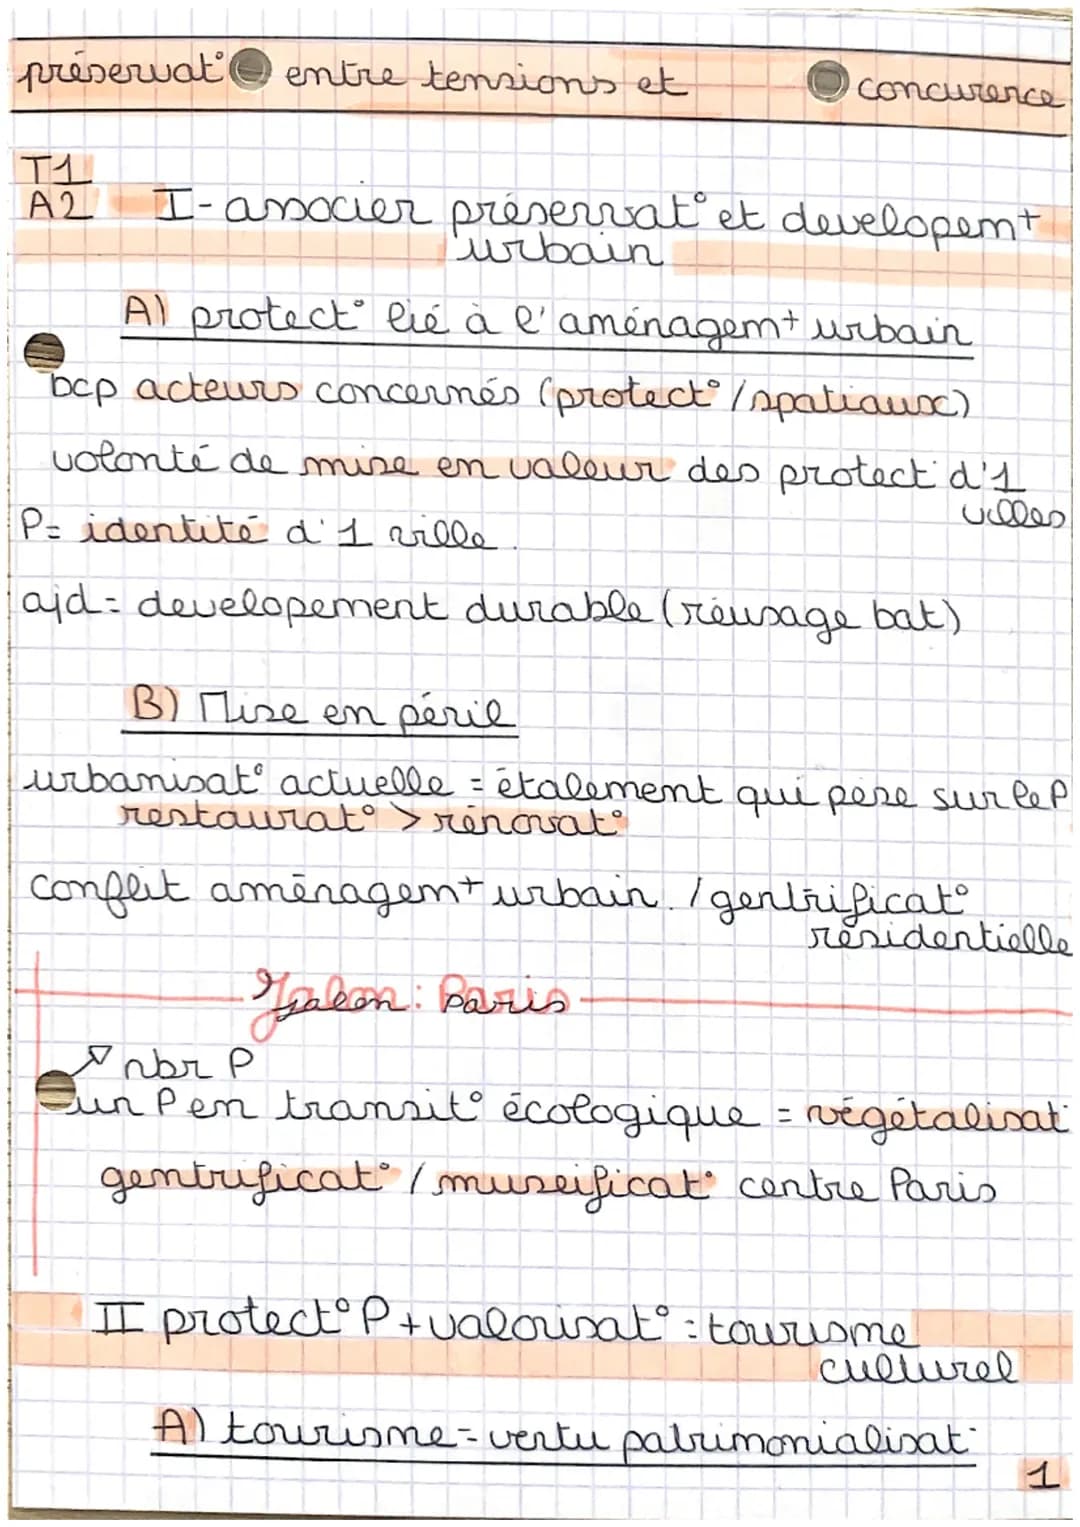 préservat° entre tensions et concurence
T1
A2
I- associer préservat° et developem+
urbain
A) protect° lié à l'aménagem+ urbain
bcp acteurs concernés (protect°/spatiaux)
volonté de mise en valeur des protect° d'1
villes
P= identité d'1 ville.
ajd= developement durable (réusage bat)
B) Mise en péril
urbanisat° actuelle = étalement qui pèse sur le P
restaurat° > rénovat°
conflit aménagem+ urbain. / gentrificat°
résidentielle
Jalon: Paris
↗ nbr P
un P en transit° écologique = végétalisat°
gentrificat° / museificat° centre Paris
II protect° P + valorisat° = tourisme
culturel
A) tourisme = vertu patrimonialisat°
1